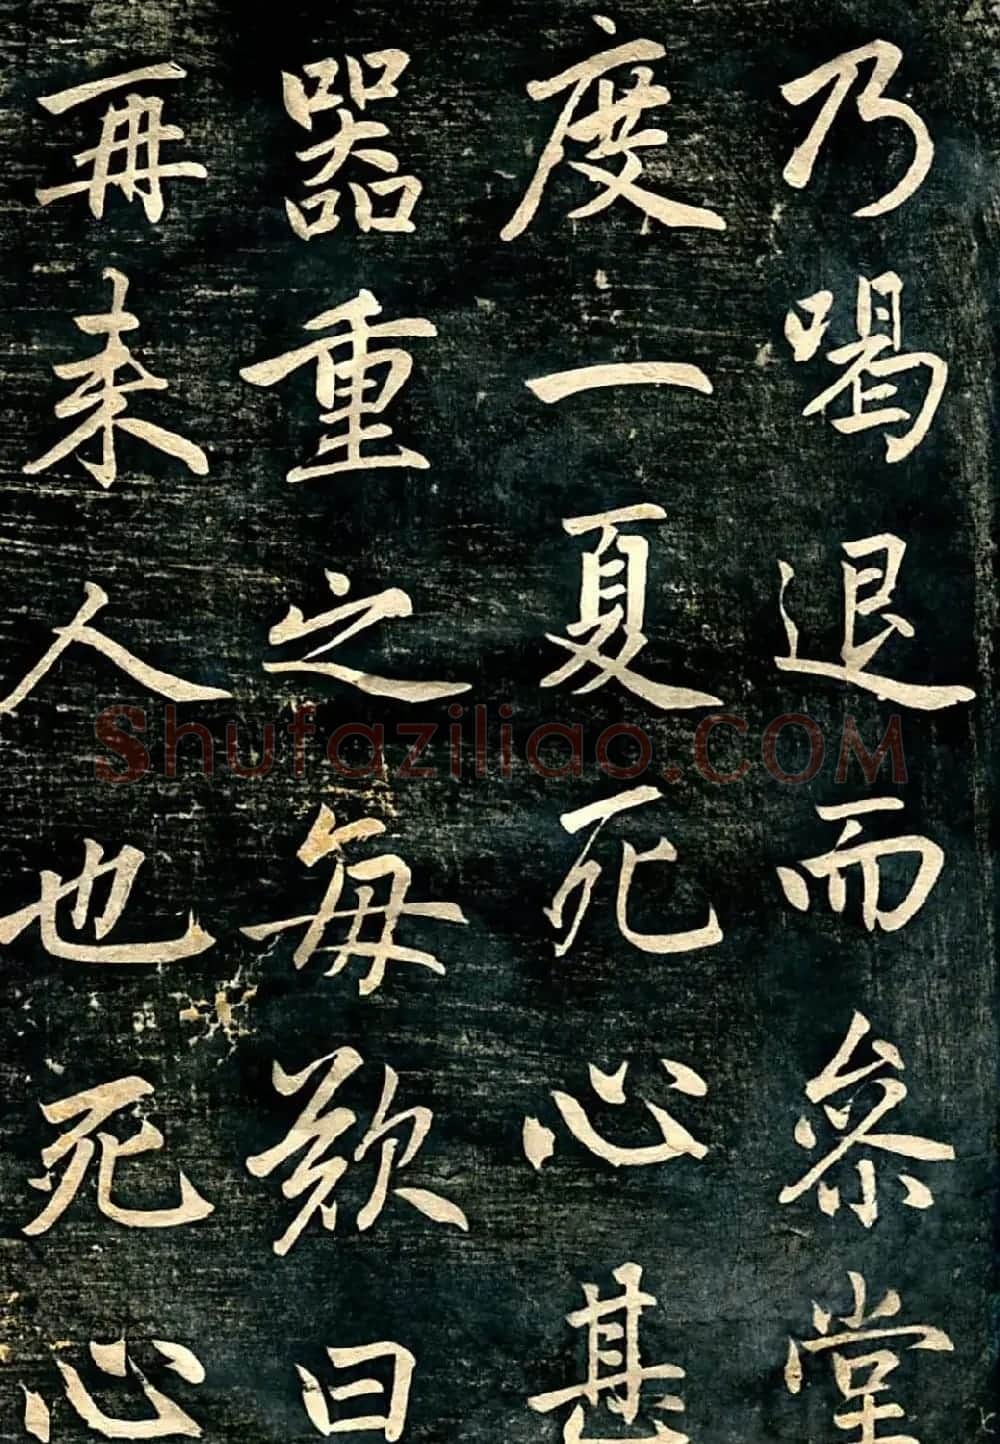 乃喝退而參堂
度一夏死心甚
器重之每歎曰
再来人也死心
Shufaziliao.COM